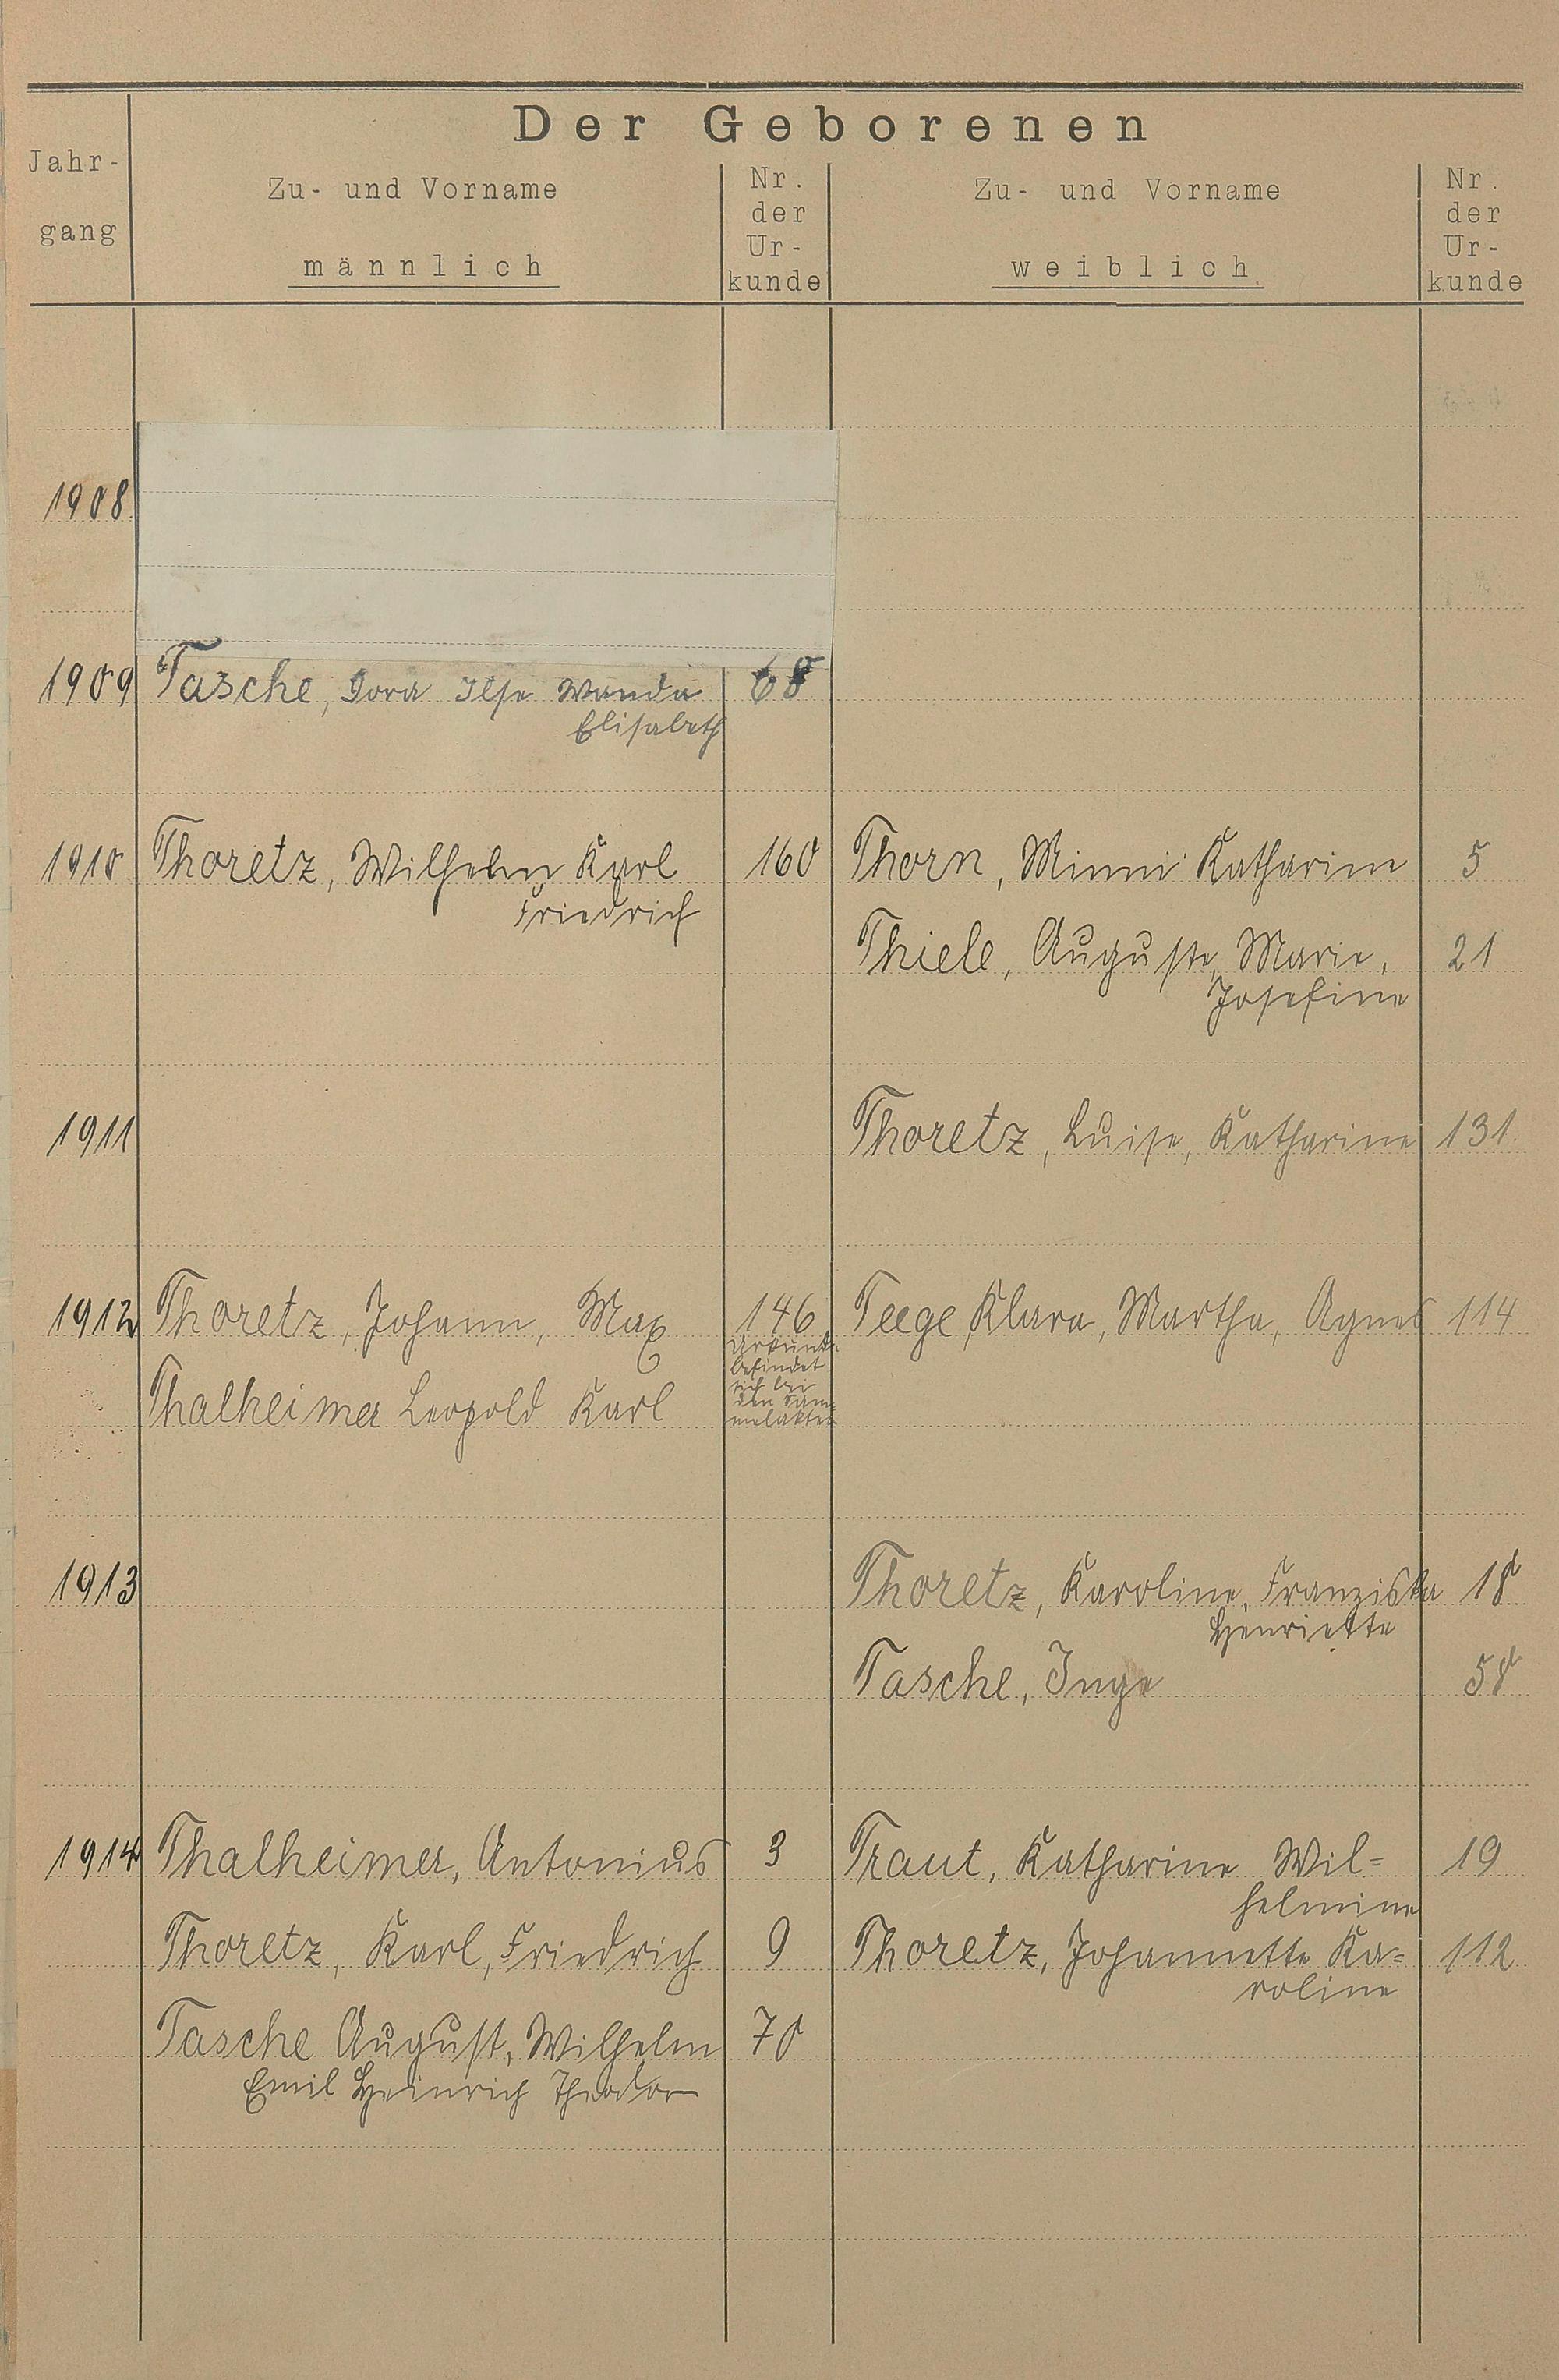 Der Geborenen
Jahr-
gang
Zu- und Vorname
männlich
Nr.
der
Ur-
kunde
Zu- und Vorname
weiblich
Nr.
der
Ur-
kunde
1908
1909 Tasche, Dora Ilse Wanda 68
Elisabeth
1910 Thoretz, Wilhelm Karl 160 Thorn, Minni Katharine 5
Friedrich
Thiele, Auguste, Marie, 21
Josefine
1911 Thoretz, Luise, Katharine 131
1912 Thoretz, Johann, Max 146 Teege, Klara, Martha, Agnes 114
Urkunde
befindet
sich bei
Thalheimer Leopold Karl den Sam
melakten
1913 Thoretz, Karoline, Franziska 18
Henriette
Tasche, Inge 58
1914 Thalheimer, Antonius 3 Traut, Katharine Wil=
helmine 19
Thoretz, Karl, Friedrich 9 Thoretz, Johannette Ka= 112
roline
Tasche August, Wilhelm 70
Emil Heinrich Theodor